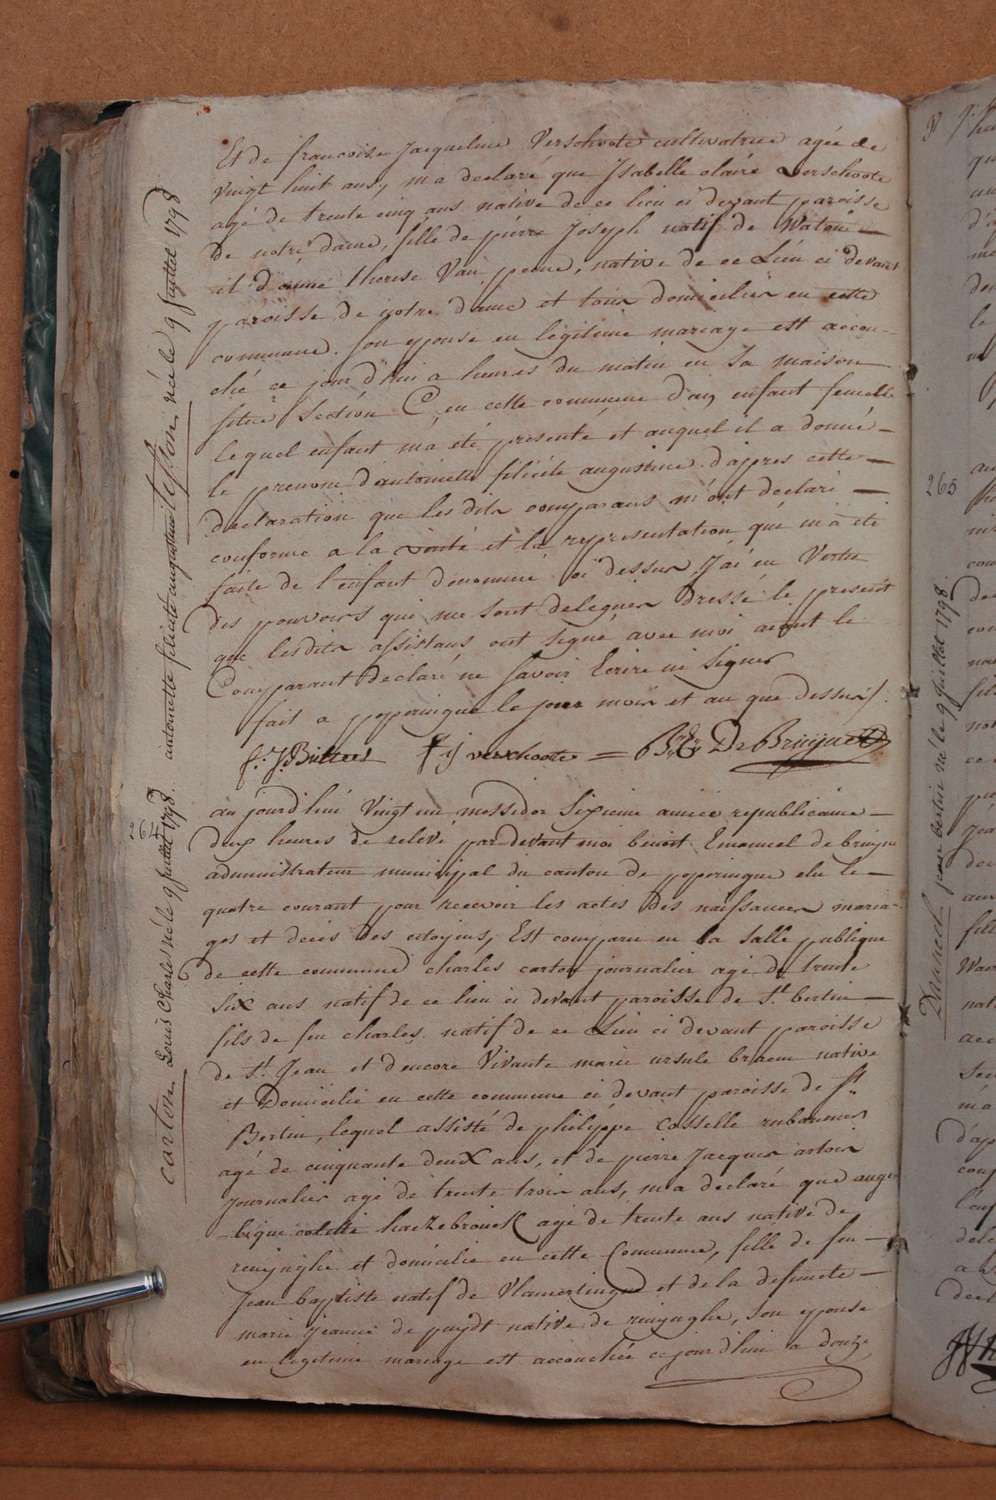 Et de francoise Jacqueline Verschoote cultivatrice agée de
vingt huit ans, m'a declaré que Isabelle claire verschoote
agé de trente cinq ans native de ce lieu ci devant paroisse
de notre dame, fille de piérre Joseph natif de Watou
et d'anne therese Van peene, native de ce Lieu ci devant
paroisse de notre dame et tous domicilies en cette
commune. son epouse en légitime mariage est accou-
ché ce jour d'hui a heures du matin en sa maison
situé Section C en cette commune d'un enfant femelle
lequel enfant m'a été presenté et auquel il a donné
le prenom d'antoinette félicité augustine. d'apres cette
declaration que lesdits comparans m'ont declaré
conforme a la verité et la representation qui m'a été
faite de l'enfant denommé ci dessus. J'ai en Vertu
des pouvoirs qui me sont delegués Dressé le present
que lesdits assistans ont signé avec moi aiant le
Comparant declaré ne savoir Ecrire ni signer
fait a poperingue le jour mois et an que dessus
f: J: f j verschoote = B: E: De Bruyne
264
au jourd'hui Vingt un messidor sixieme année republicaine
deux heures de relevé par devant moi benoit Emanuel de bruyne
administrateur municipal du canton de poperingue elu le
quatre courant pour recevoir les actes des naissances maria-
ges et décès des citoyens, Est comparu en la salle publique
de cette commune charles carton journalier agé de trente
six ans natif de ce lieu ci devant paroisse de St bertin
fils de feu charles natif de ce Lieu ci devant paroisse
de St Jean et d'encore Vivante marie ursule braem native
et Domicilié en cette commune ci devant paroisse de St
Bertin, lequel assisté de philippe Casselle
agé de cinquante deux ans, et de pierre Jacques artois
journalier agé de trente trois ans, m'a declaré que ange-
lique colette haezebrouck agé de trente ans native de
reninghe et domicilié en cette Commune, fille de feu
Jean baptiste natif de Vlamertingue et de la defuncte
marie jeanne de puydt native de reninghe, son epouse
en legitime mariage est accouchée ce jourd'hui a douze
antoinette félicité augustine née le 9 Juillet 1798
carton Louis Charle né le 9 Juillet 1798.
265
pierre bertin né le 9 Juillet 1798.